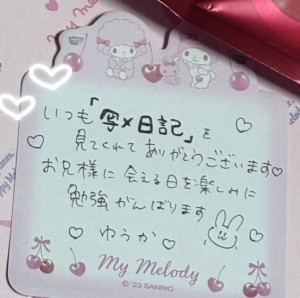 いつも「写メ日記」を
見てくれてありがとうございます♡
お兄様に会える日を楽しみに
勉強がんばります
ゆうか♡
My Melody
© '23 SANRIO